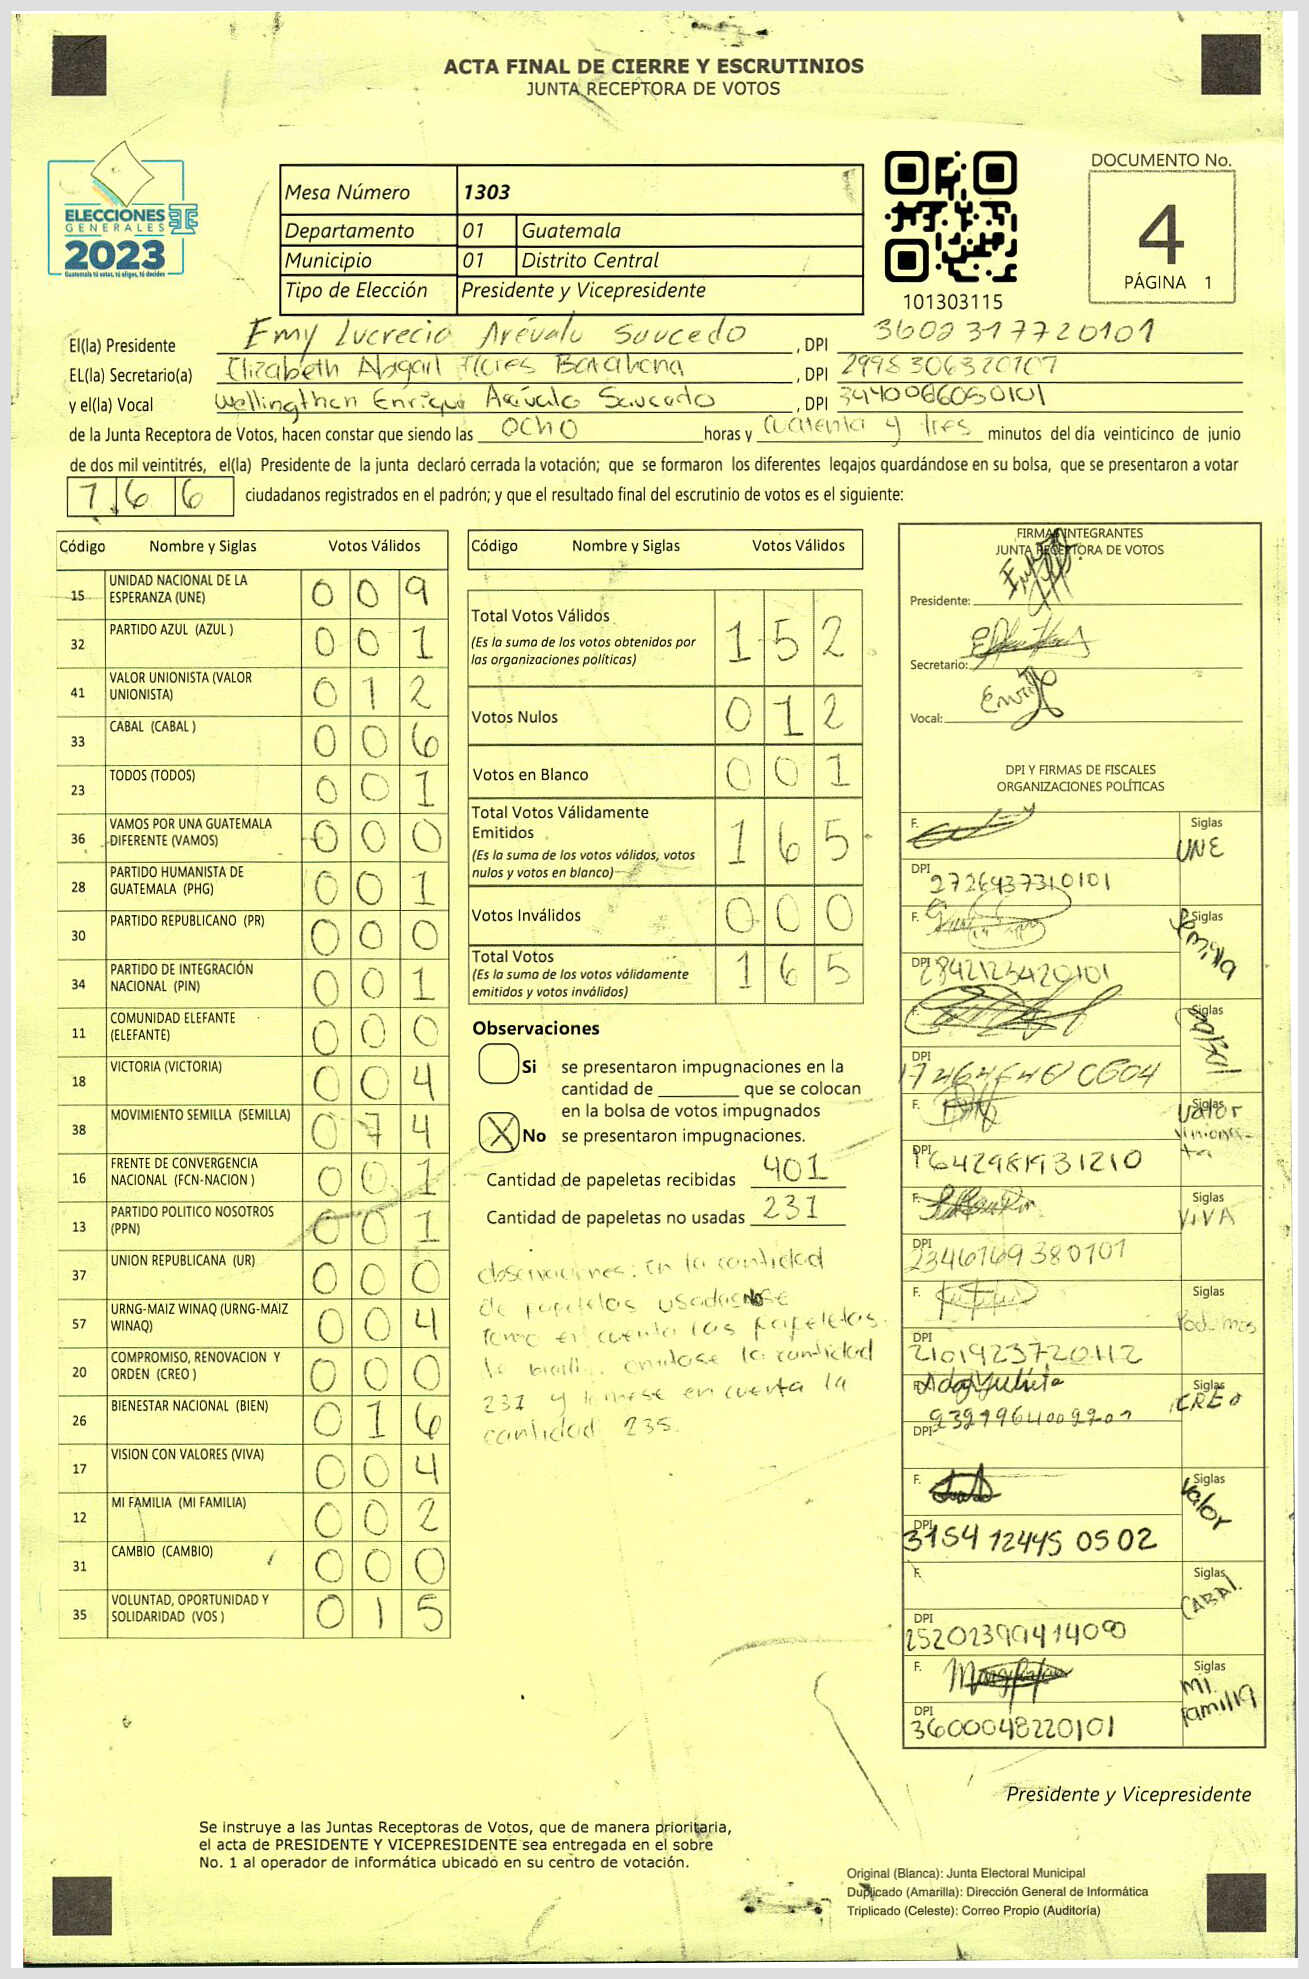 ACTA FINAL DE CIERRE Y ESCRUTINIOS
JUNTA RECEPTORA DE VOTOS
ELECCIONES
GENERALES
2023
Guatemala tú votas, tú eliges, tú decides
Mesa Número 1303
Departamento 01 Guatemala
Municipio 01 Distrito Central
Tipo de Elección Presidente y Vicepresidente
101303115
DOCUMENTO No.
4
PÁGINA 1
El(la) Presidente Emy Lucrecia Arévalo Saucedo, DPI 3602317720101
EL(la) Secretario(a) Elizabeth Abgail Flores Barahona, DPI 2998306320107
y el(la) Vocal Wellingthon Enrique Arévalo Saucedo, DPI 3440086050101
de la Junta Receptora de Votos, hacen constar que siendo las ocho horas y cuarenta y tres minutos del día veinticinco de junio
de dos mil veintitrés, el(la) Presidente de la junta declaró cerrada la votación; que se formaron los diferentes legajos guardándose en su bolsa, que se presentaron a votar
766 ciudadanos registrados en el padrón; y que el resultado final del escrutinio de votos es el siguiente:
Código Nombre y Siglas Votos Válidos
15 UNIDAD NACIONAL DE LA ESPERANZA (UNE) 009
32 PARTIDO AZUL (AZUL ) 001
41 VALOR UNIONISTA (VALOR UNIONISTA) 012
33 CABAL (CABAL ) 006
23 TODOS (TODOS) 001
36 VAMOS POR UNA GUATEMALA DIFERENTE (VAMOS) 000
28 PARTIDO HUMANISTA DE GUATEMALA (PHG) 001
30 PARTIDO REPUBLICANO (PR) 000
34 PARTIDO DE INTEGRACIÓN NACIONAL (PIN) 001
11 COMUNIDAD ELEFANTE (ELEFANTE) 000
18 VICTORIA (VICTORIA) 004
38 MOVIMIENTO SEMILLA (SEMILLA) 074
16 FRENTE DE CONVERGENCIA NACIONAL (FCN-NACION ) 001
13 PARTIDO POLITICO NOSOTROS (PPN) 001
37 UNION REPUBLICANA (UR) 000
57 URNG-MAIZ WINAQ (URNG-MAIZ WINAQ) 004
20 COMPROMISO, RENOVACION Y ORDEN (CREO ) 000
26 BIENESTAR NACIONAL (BIEN) 016
17 VISION CON VALORES (VIVA) 004
12 MI FAMILIA (MI FAMILIA) 002
31 CAMBIO (CAMBIO) 000
35 VOLUNTAD, OPORTUNIDAD Y SOLIDARIDAD (VOS ) 015
Código Nombre y Siglas Votos Válidos
Total Votos Válidos 152
(Es la suma de los votos obtenidos por
las organizaciones políticas)
Votos Nulos 012
Votos en Blanco 001
Total Votos Válidamente
Emitidos 165
(Es la suma de los votos válidos, votos
nulos y votos en blanco)
Votos Inválidos 000
Total Votos 165
(Es la suma de los votos válidamente
emitidos y votos inválidos)
Observaciones
Si se presentaron impugnaciones en la
cantidad de ________ que se colocan
en la bolsa de votos impugnados
X No se presentaron impugnaciones.
Cantidad de papeletas recibidas 401
Cantidad de papeletas no usadas 231
observaciones: En la cantidad
de papeletas usadas no se
tomo en cuenta las papeletas
omitase la cantidad
231 y tomese en cuenta la
cantidad 235.
FIRMAS INTEGRANTES
JUNTA RECEPTORA DE VOTOS
Presidente:
Secretario:
Vocal:
DPI Y FIRMAS DE FISCALES
ORGANIZACIONES POLÍTICAS
F. Siglas UNE
DPI 2726937310101
F. Siglas Semilla
DPI 2842123420101
F. Siglas
DPI
F. Siglas Valor Unionista
DPI 1642981931210
F. Siglas VIVA
DPI 2346169380101
F. Siglas Podemos
DPI 2101923720112
F. Siglas CREO
DPI
F. Siglas Valor
DPI 3154 12445 0502
F. Siglas CABAL
DPI
F. Siglas Mi familia
DPI 3600048220101
Presidente y Vicepresidente
Se instruye a las Juntas Receptoras de Votos, que de manera prioritaria,
el acta de PRESIDENTE Y VICEPRESIDENTE sea entregada en el sobre
No. 1 al operador de informática ubicado en su centro de votación.
Original (Blanca): Junta Electoral Municipal
Duplicado (Amarilla): Dirección General de Informática
Triplicado (Celeste): Correo Propio (Auditoría)